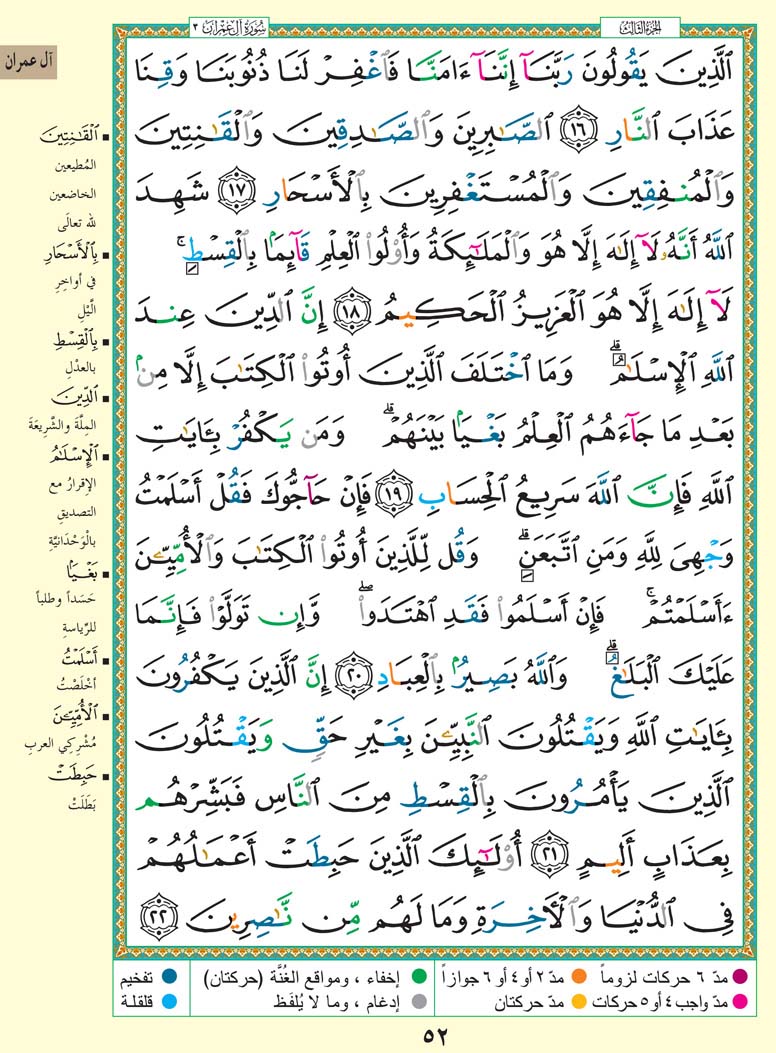 الجزء الثالث
سورة آل عمران ٣
آل عمران
الَّذِينَ يَقُولُونَ رَبَّنَآ إِنَّنَآ ءَامَنَّا فَاغْفِرْ لَنَا ذُنُوبَنَا وَقِنَا
عَذَابَ النَّارِ ١٦ الصَّٰبِرِينَ وَالصَّٰدِقِينَ وَالْقَٰنِتِينَ
وَالْمُنفِقِينَ وَالْمُسْتَغْفِرِينَ بِالْأَسْحَارِ ١٧ شَهِدَ
اللَّهُ أَنَّهُۥ لَآ إِلَٰهَ إِلَّا هُوَ وَالْمَلَٰٓئِكَةُ وَأُو۟لُوا۟ الْعِلْمِ قَآئِمَۢا بِالْقِسْطِ ۚ
لَآ إِلَٰهَ إِلَّا هُوَ الْعَزِيزُ الْحَكِيمُ ١٨ إِنَّ الدِّينَ عِندَ
اللَّهِ الْإِسْلَٰمُ ۗ وَمَا اخْتَلَفَ الَّذِينَ أُوتُوا۟ الْكِتَٰبَ إِلَّا مِنۢ
بَعْدِ مَا جَآءَهُمُ الْعِلْمُ بَغْيَۢا بَيْنَهُمْ ۗ وَمَن يَكْفُرْ بِـَٔايَٰتِ
اللَّهِ فَإِنَّ اللَّهَ سَرِيعُ الْحِسَابِ ١٩ فَإِنْ حَآجُّوكَ فَقُلْ أَسْلَمْتُ
وَجْهِىَ لِلَّهِ وَمَنِ اتَّبَعَنِ ۗ وَقُل لِّلَّذِينَ أُوتُوا۟ الْكِتَٰبَ وَالْأُمِّيِّـۧنَ
ءَأَسْلَمْتُمْ ۚ فَإِنْ أَسْلَمُوا۟ فَقَدِ اهْتَدَوا۟ ۖ وَّإِن تَوَلَّوْا۟ فَإِنَّمَا
عَلَيْكَ الْبَلَٰغُ ۗ وَاللَّهُ بَصِيرُۢ بِالْعِبَادِ ٢٠ إِنَّ الَّذِينَ يَكْفُرُونَ
بِـَٔايَٰتِ اللَّهِ وَيَقْتُلُونَ النَّبِيِّـۧنَ بِغَيْرِ حَقٍّ وَيَقْتُلُونَ
الَّذِينَ يَأْمُرُونَ بِالْقِسْطِ مِنَ النَّاسِ فَبَشِّرْهُم
بِعَذَابٍ أَلِيمٍ ٢١ أُو۟لَٰٓئِكَ الَّذِينَ حَبِطَتْ أَعْمَٰلُهُمْ
فِى الدُّنْيَا وَالْأَخِرَةِ وَمَا لَهُم مِّن نَّٰصِرِينَ ٢٢
الْقَٰنِتِينَ
المُطيعين
الخاضعين
لله تعالَى
بِالْأَسْحَارِ
في أواخِرِ
الَّيْلِ
بِالْقِسْطِ
بالعدْلِ
الدِّينَ
المِلَّةَ والشَّرِيعَةَ
الْإِسْلَٰمُ
الإقرارُ مع
التصديقِ
بالْوَحْدَانيَّةِ
بَغْيَۢا
حَسَداً وطلباً
للرِّياسةِ
أَسْلَمْتُ
أخْلَصْتُ
الْأُمِّيِّـۧنَ
مُشْرِكي العرب
حَبِطَتْ
بَطَلَتْ
مدّ ٦ حركات لزوماً
مدّ ٢ أو ٤ أو ٦ جوازاً
إخفاء ، ومواقع الغُنَّة (حركتان)
تفخيم
مدّ واجب ٤ أو ٥ حركات
مدّ حركتان
إدغام ، وما لا يُلفَظ
قلقلة
٥٢